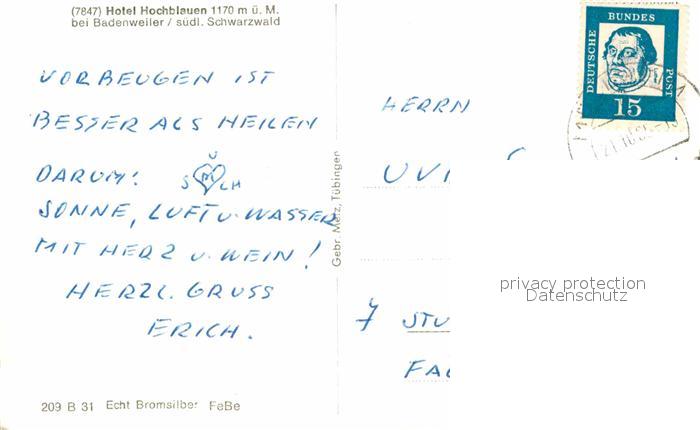 (7847) Hotel Hochblauen 1170 m ü. M.
bei Badenweiler / südl. Schwarzwald
VORBEUGEN IST
BESSER ALS HEILEN
DARUM!
SONNE, LUFT U. WASSER
MIT HERZ U. WEIN!
HERZL. GRUSS
ERICH.
209 B 31 Echt Bromsilber FeBe
Gebr. Metz, Tübingen
DEUTSCHE BUNDES POST
15
HERRN
7 STU
privacy protection
Datenschutz